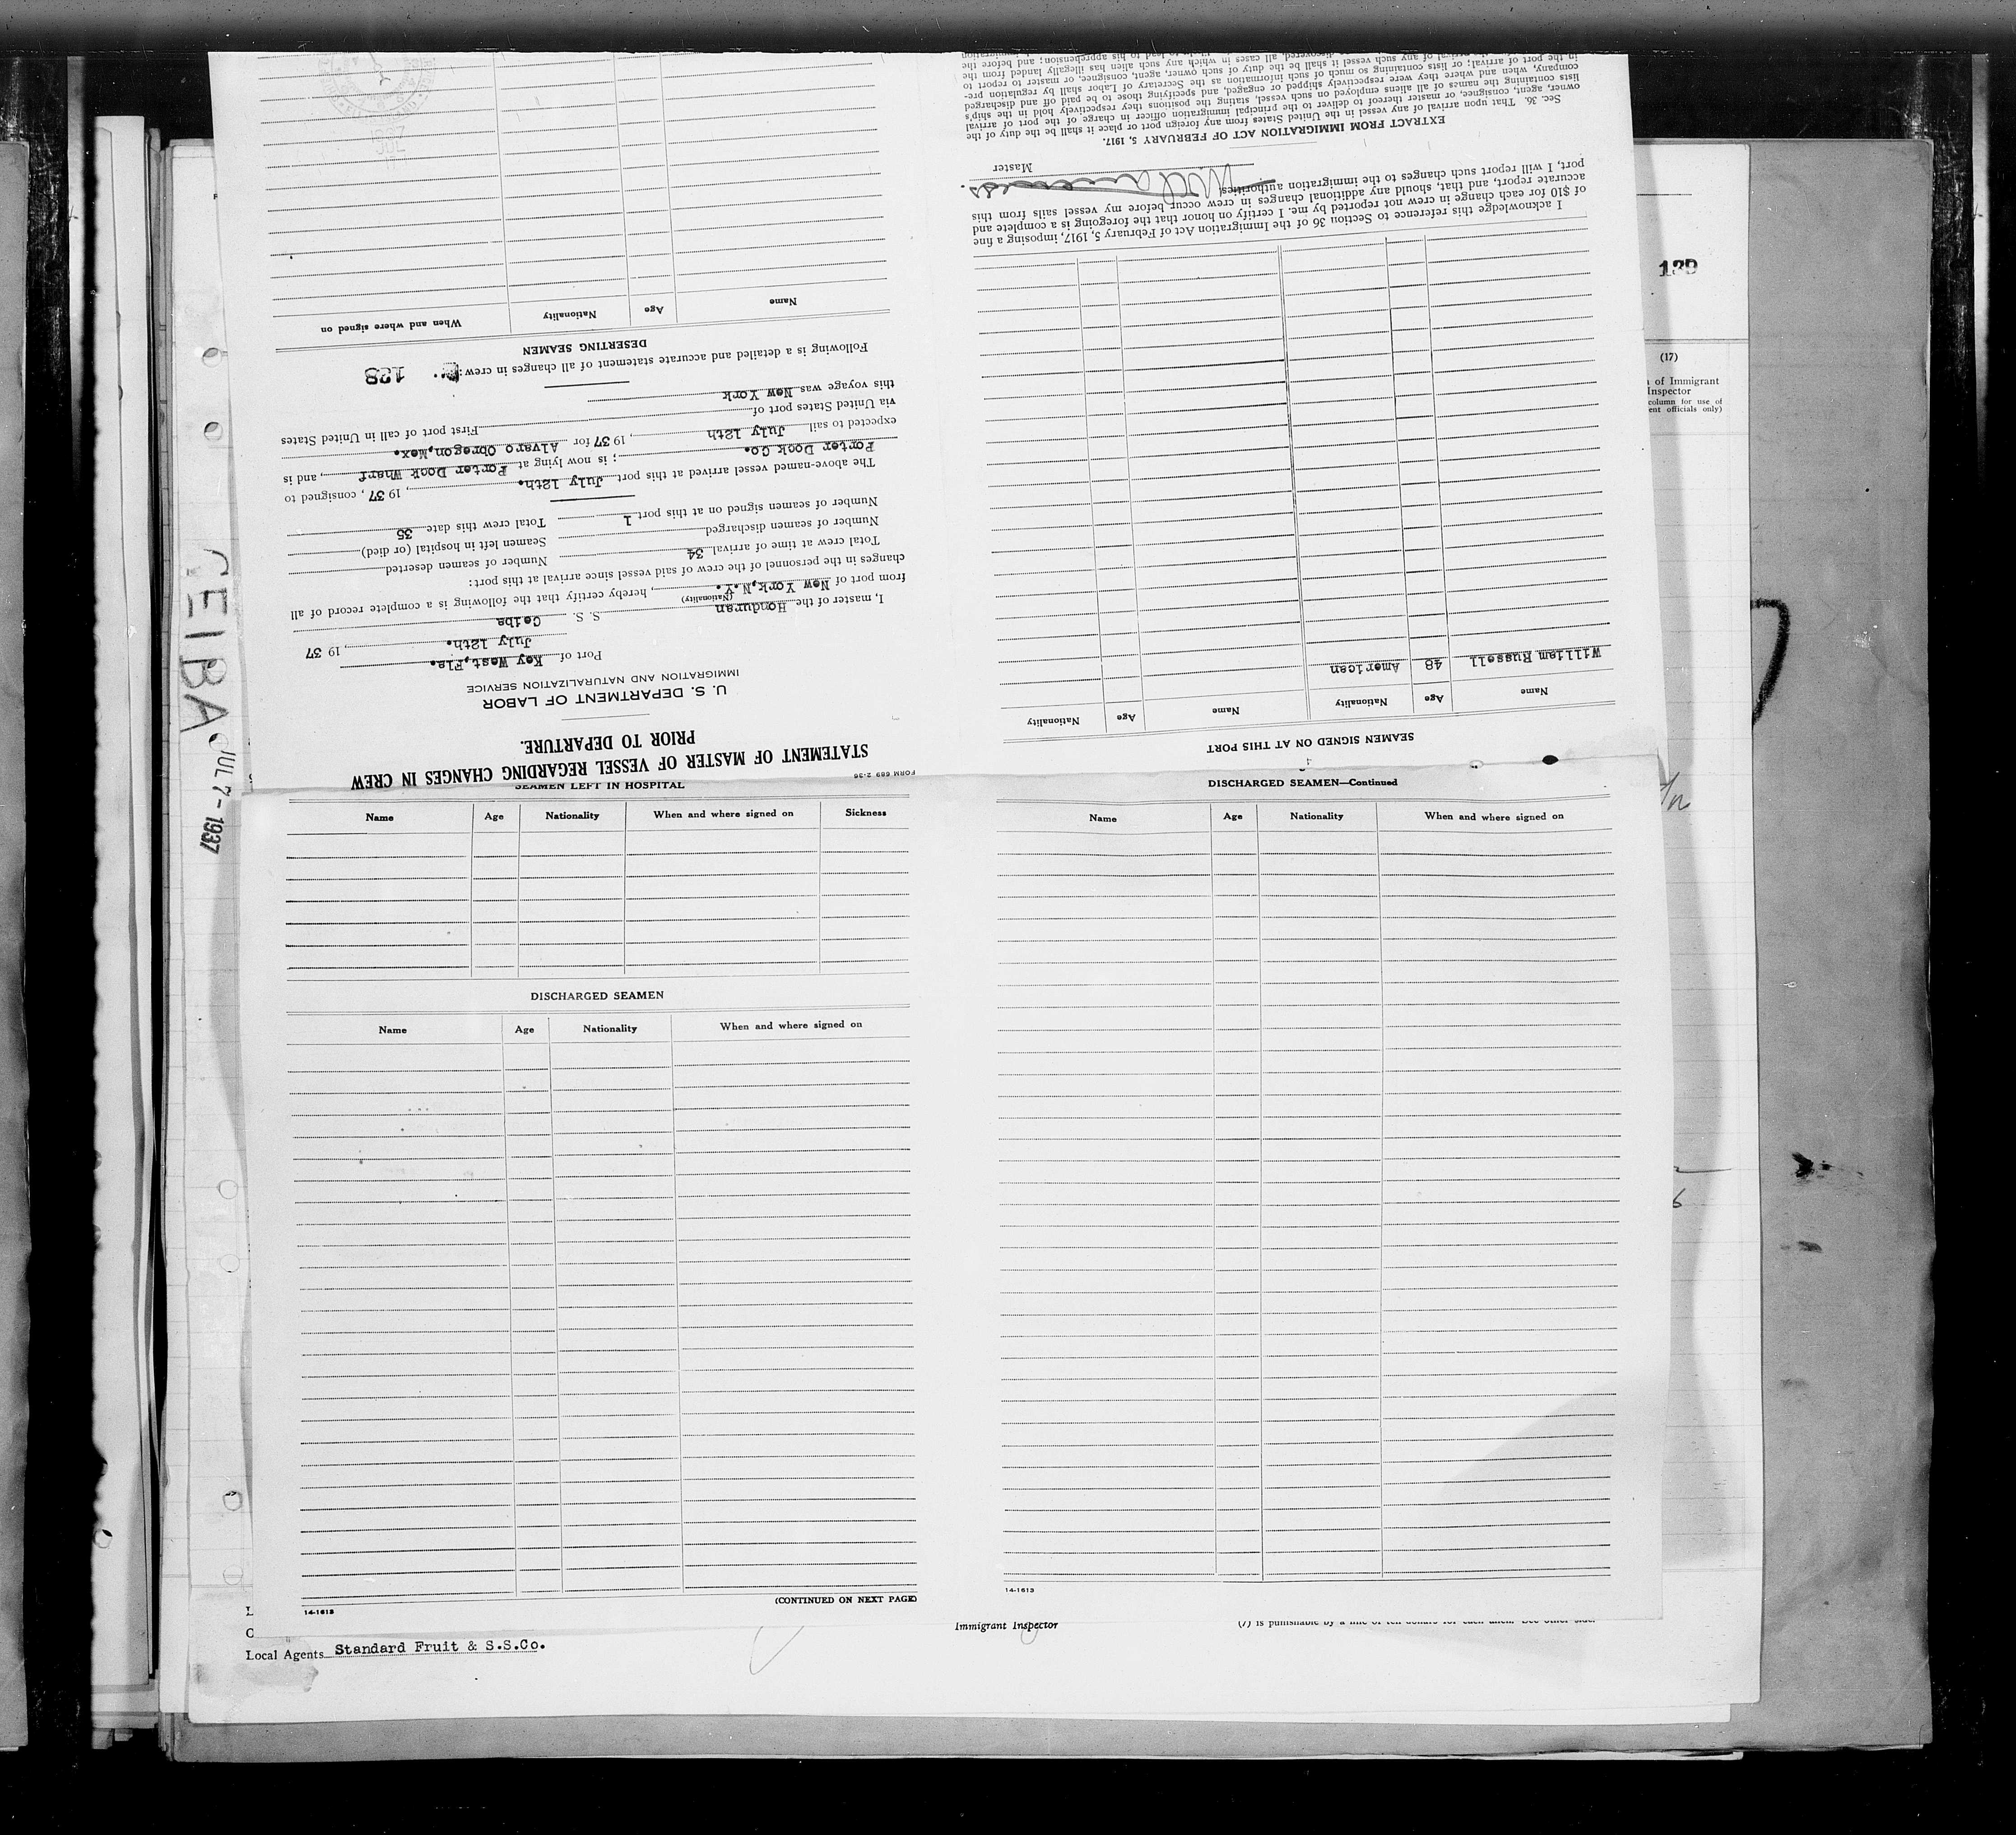 FORM 689 2-36
STATEMENT OF MASTER OF VESSEL REGARDING CHANGES IN CREW
PRIOR TO DEPARTURE.
U. S. DEPARTMENT OF LABOR
IMMIGRATION AND NATURALIZATION SERVICE
Port of Key West,Fla.
July 12th. , 19 37
I, master of the Honduran S. S. Ceiba
(Nationality)
from port of New York,N.Y. , hereby certify that the following is a complete record of all
changes in the personnel of the crew of said vessel since arrival at this port:
Total crew at time of arrival 34 Number of seamen deserted
Number of seamen discharged Seamen left in hospital (or died)
Number of seamen signed on at this port 1 Total crew this date 35
The above-named vessel arrived at this port July 12th. , 19 37 , consigned to
Porter Dock Co. ; is now lying at Porter Dock Wharf , and is
expected to sail July 12th , 19 37 for Alvaro Obregon,Mex.
via United States port of First port of call in United States
this voyage was New York
Following is a detailed and accurate statement of all changes in crew: 128
DESERTING SEAMEN
Name Age Nationality When and where signed on
SEAMEN SIGNED ON AT THIS PORT
Name Age Nationality Name Age Nationality
William Russell 48 American
I acknowledge this reference to Section 36 of the Immigration Act of February 5, 1917, imposing a fine
of $10 for each change in crew not reported by me. I certify on honor that the foregoing is a complete and
accurate report, and that, should any additional changes in crew occur before my vessel sails from this
port, I will report such changes to the immigration authorities.
Master
EXTRACT FROM IMMIGRATION ACT OF FEBRUARY 5, 1917.
Sec. 36. That upon arrival of any vessel in the United States from any foreign port or place it shall be the duty of the
owner, agent, consignee, or master thereof to deliver to the principal immigration officer in charge of the port of arrival
lists containing the names of all aliens employed on such vessel, stating the positions they respectively hold in the ship's
company, when and where they were respectively shipped or engaged, and specifying those to be paid off and discharged
in the port of arrival; or lists containing so much of such information as the Secretary of Labor shall by regulation pre-
of any such vessel it shall be the duty of such owner, agent, consignee, or master to report to
discovered, all cases in which any such alien has illegally landed from the
to lead to his apprehension; and before the
SEAMEN LEFT IN HOSPITAL
Name Age Nationality When and where signed on Sickness
DISCHARGED SEAMEN
Name Age Nationality When and where signed on
(CONTINUED ON NEXT PAGE)
14-1613
DISCHARGED SEAMEN—Continued
Name Age Nationality When and where signed on
14-1613
CEIBA
JUL 7 - 1937
139
(17)
of Immigrant
Inspector
column for use of
ent officials only)
Local Agents Standard Fruit & S.S.Co.
Immigrant Inspector
(7) is punishable by a fine of ten dollars for each alien. See other side.